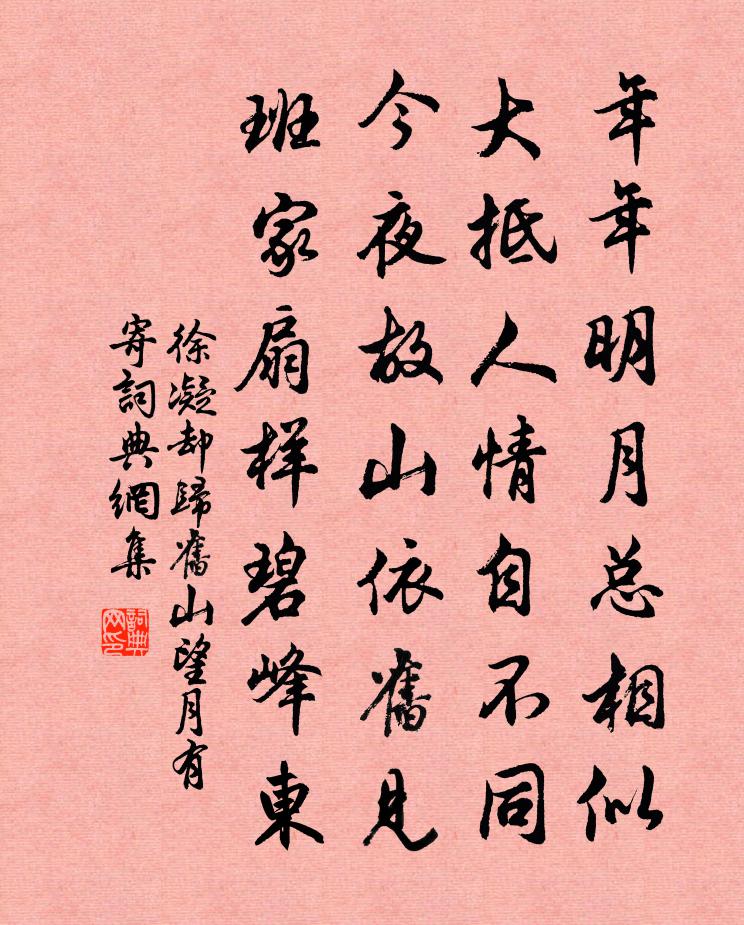 年年明月总相似
大抵人情自不同
今夜故山依舊見
班家扇样碧峰東
徐凝却歸舊山望月有
寄詞典網集
詞典
网印